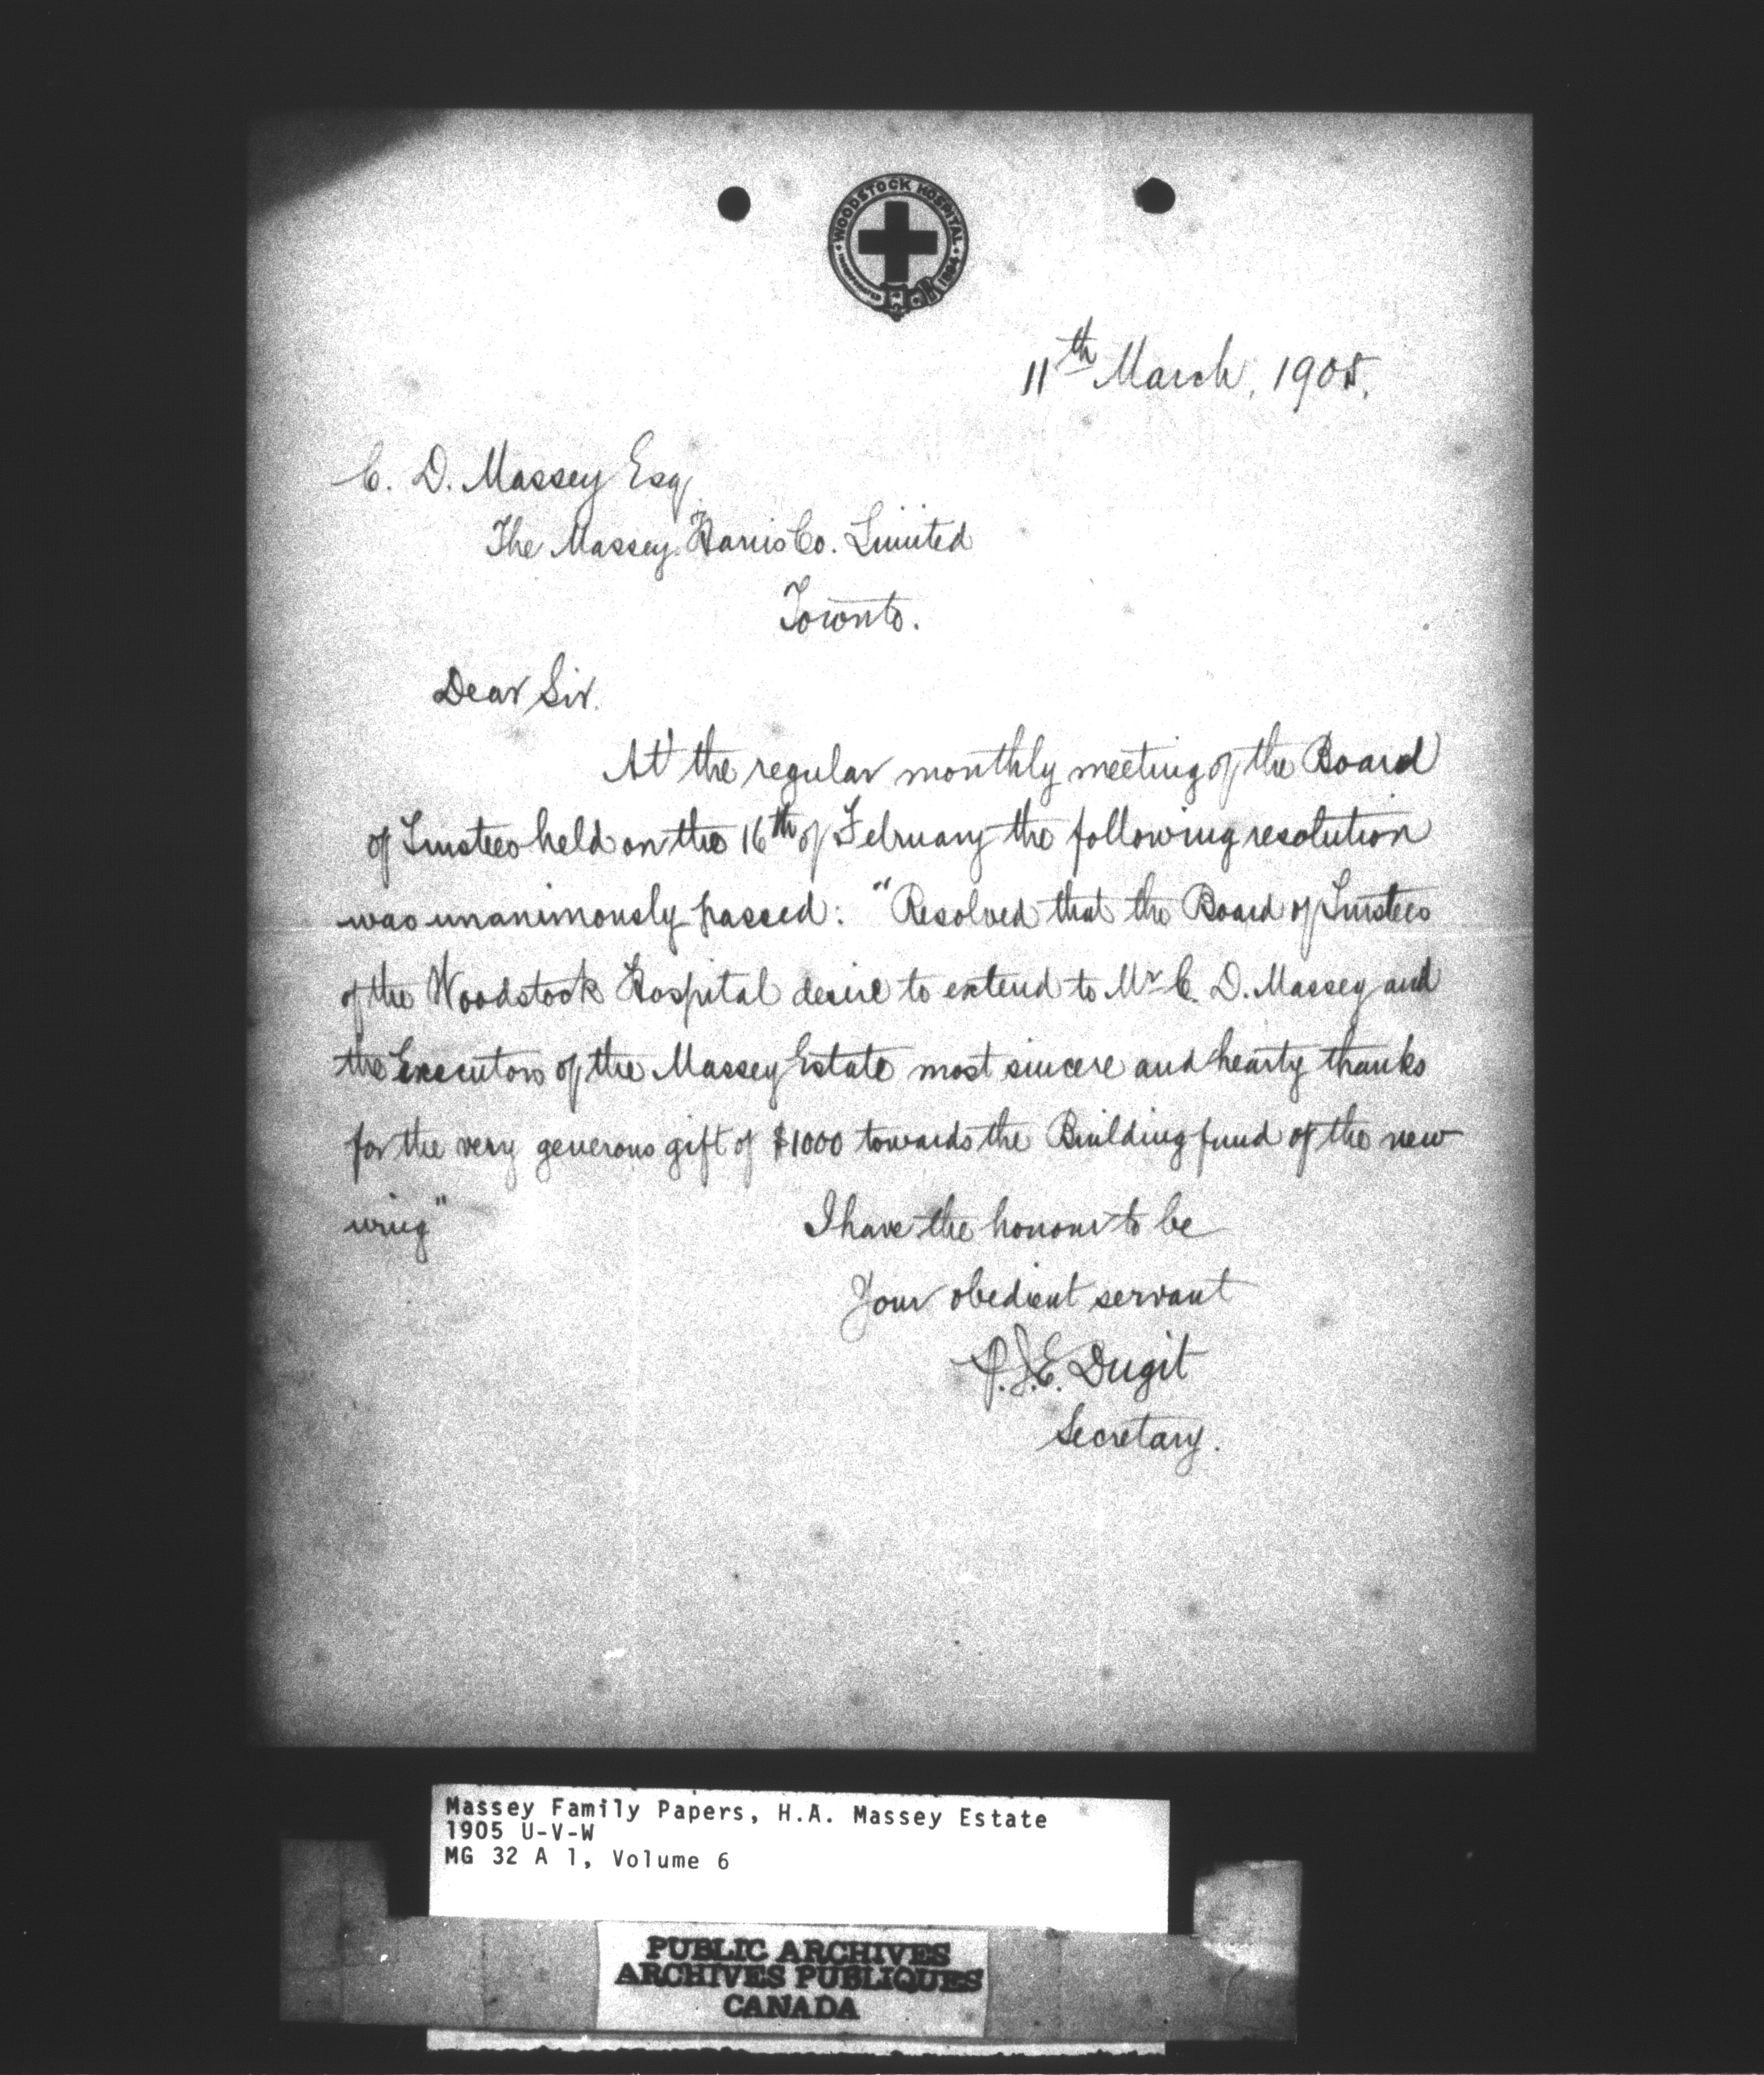 WOODSTOCK HOSPITAL
1894
11th March, 1905.
C. D. Massey Esq.
The Massey Harris Co. Limited
Toronto.
Dear Sir.
At the regular monthly meeting of the Board
of Trustees held on the 16th of February the following resolution
was unanimously passed: "Resolved that the Board of Trustees
of the Woodstock Hospital desire to extend to Mr C. D. Massey and
the Executors of the Massey Estate most sincere and hearty thanks
for the very generous gift of $1000 towards the Building fund of the new
wing"
I have the honour to be
Your obedient servant
Dugit
Secretary.
Massey Family Papers, H.A. Massey Estate
1905 U-V-W
MG 32 A 1, Volume 6
PUBLIC ARCHIVES
ARCHIVES PUBLIQUES
CANADA